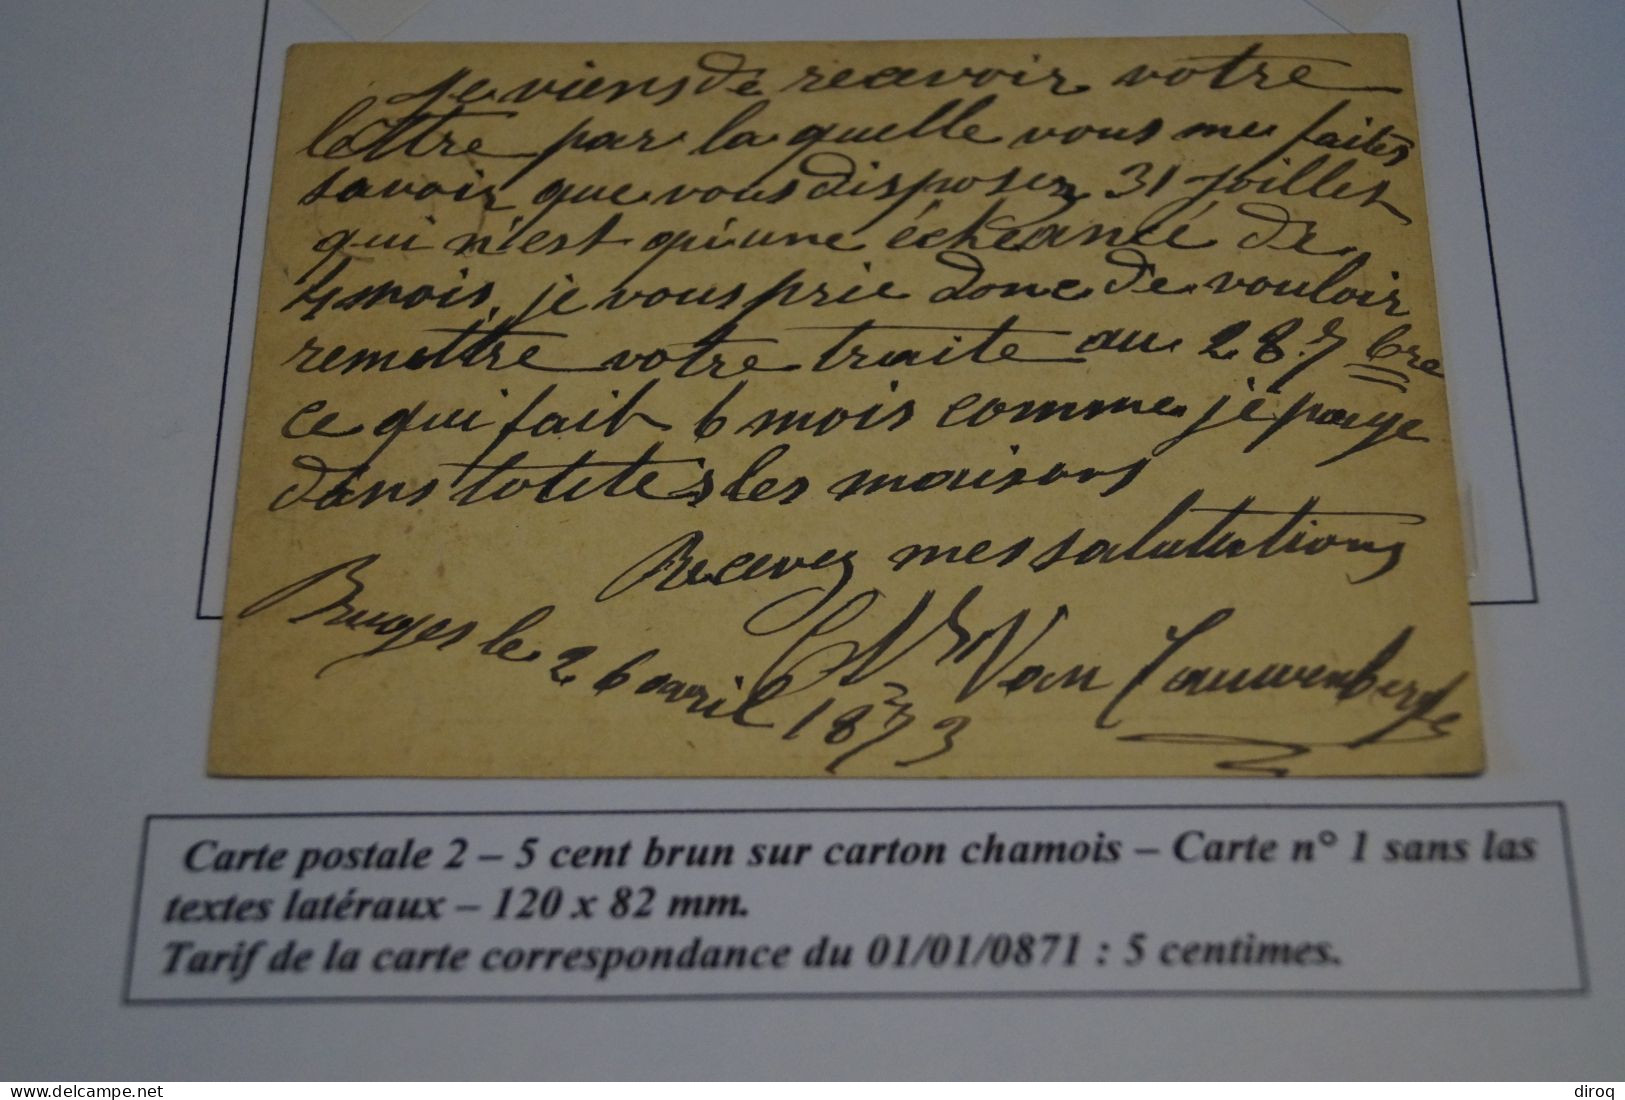 Je viens de recevoir votre
lettre par la quelle vous me faites
savoir que vous disposez 31 Joillet
qui n'est qu'une échéance de
4 mois, je vous prie donc de vouloir
remettre votre traite au 28. 7bre
ce qui fait 6 mois comme je paye
dans toutes les maisons
Recevez mes salutations
Bruges le 26 avril 1873
Van Cauwenberghe
Carte postale 2 – 5 cent brun sur carton chamois – Carte n° 1 sans las
textes latéraux – 120 x 82 mm.
Tarif de la carte correspondance du 01/01/0871 : 5 centimes.
www.delcampe.net
diroq